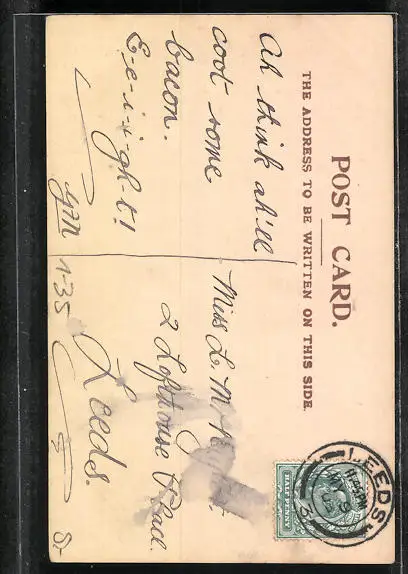 POST CARD.
THE ADDRESS TO BE WRITTEN ON THIS SIDE.
Ah think ah'll
coot some
bacon.
E-e-i-i-gh-t!
Miss L.
2 Lofthouse Place.
Leeds.
1-35
LEEDS
HALF PENNY